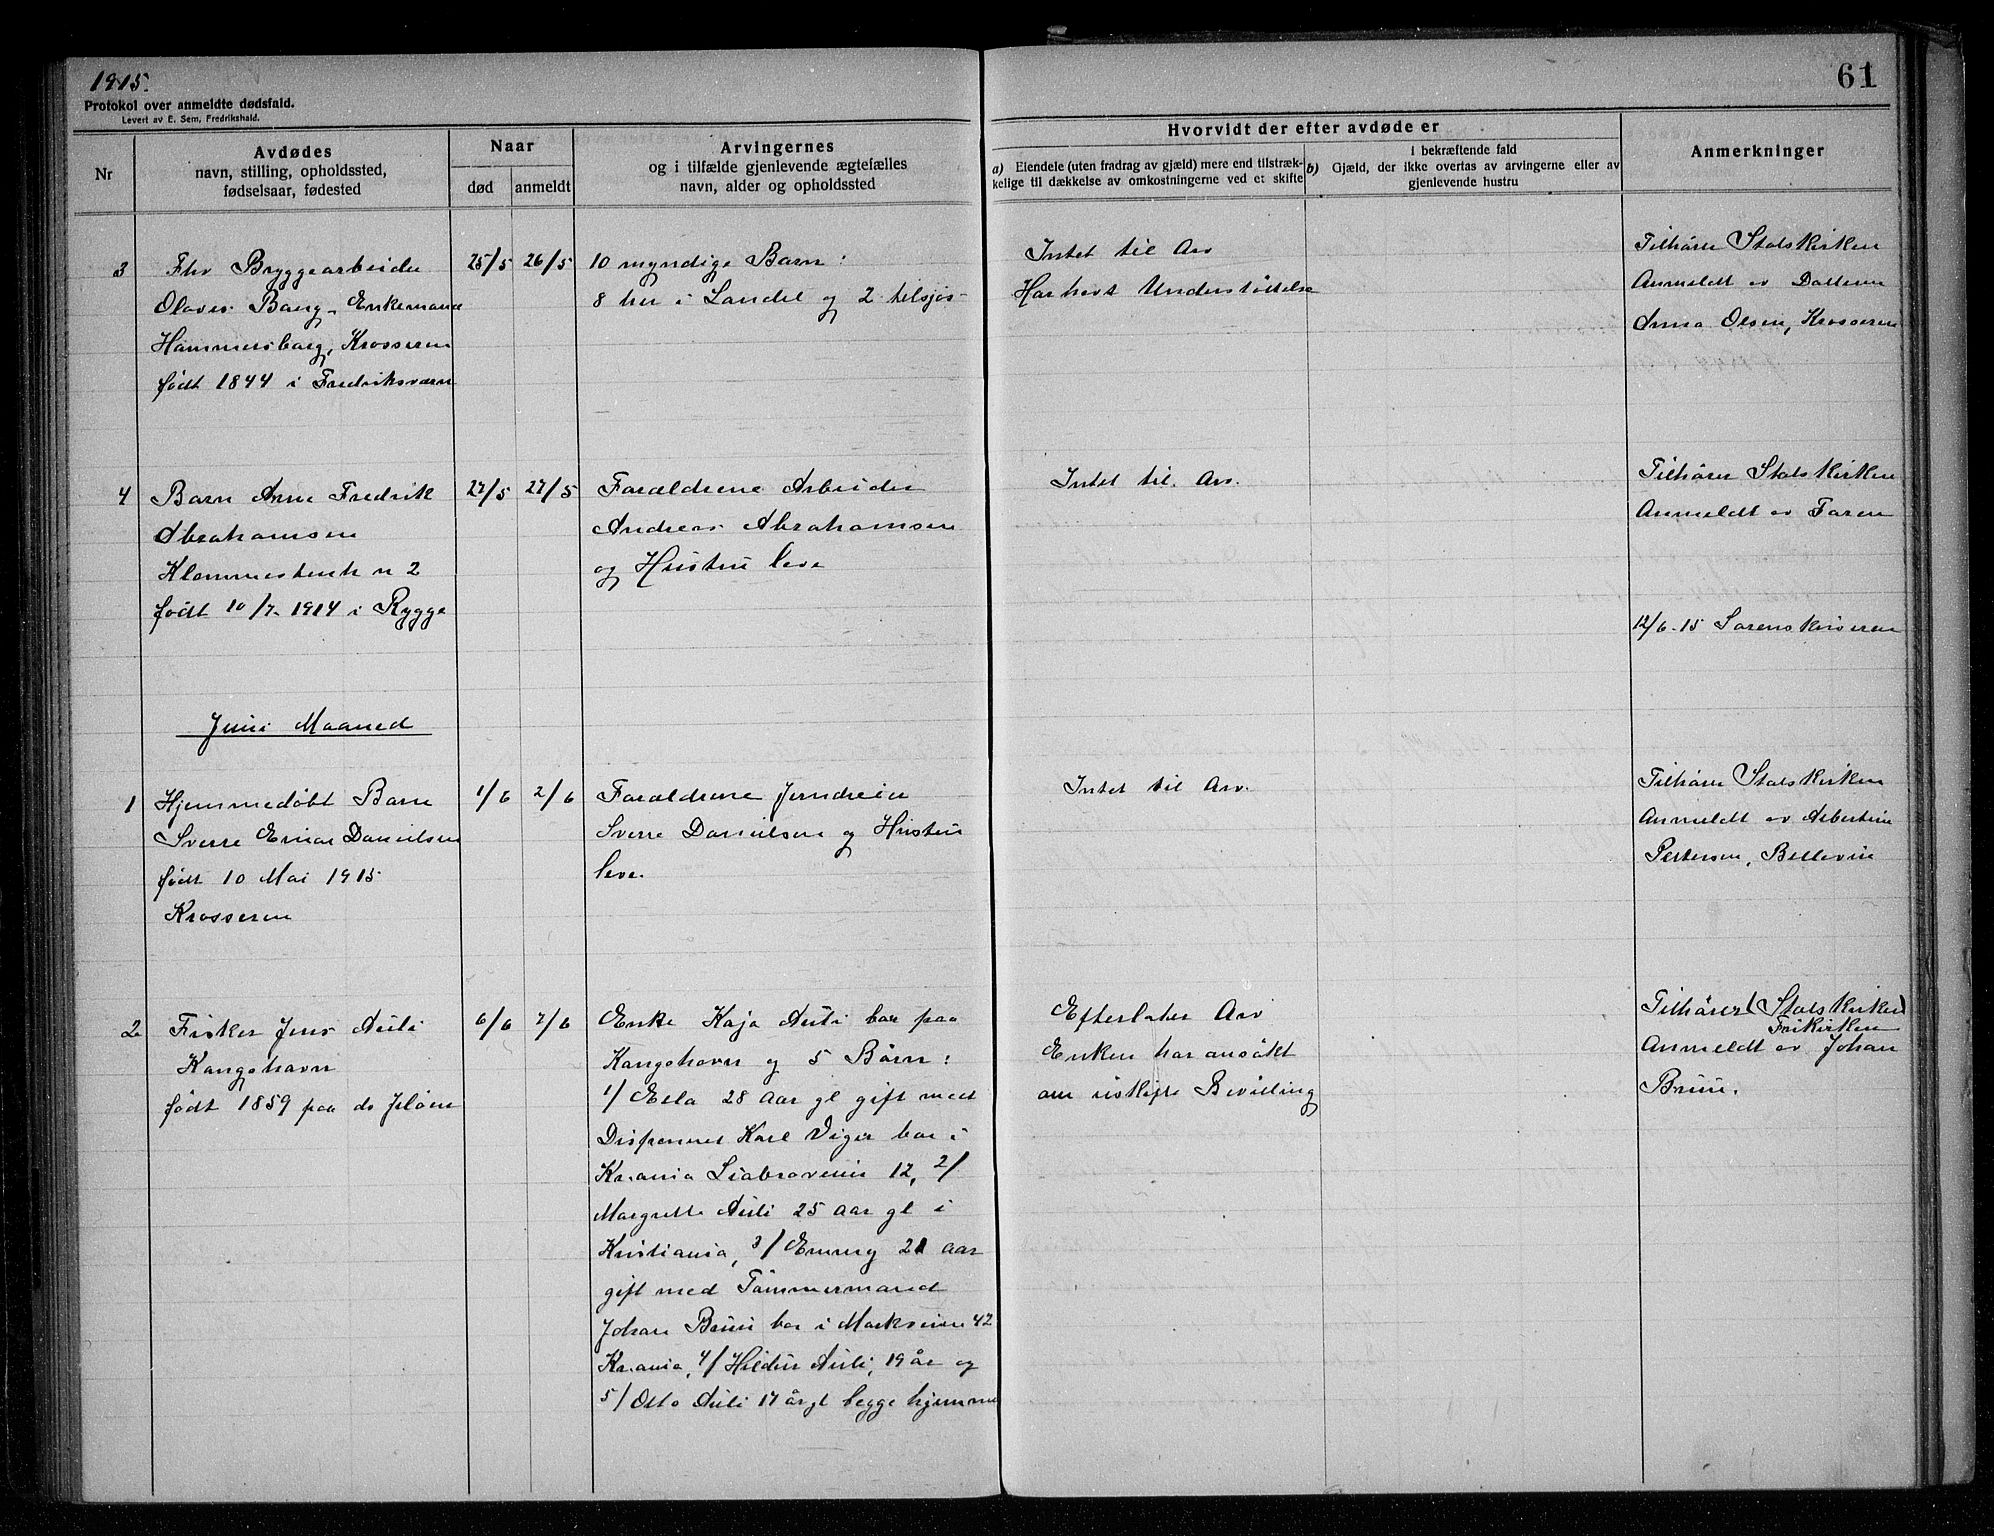 1915.
Protokol over anmeldte dødsfald.
Levert av E. Sem, Fredrikshald.
61
Nr
Avdødes
navn, stilling, opholdssted,
fødselsaar, fødested
Naar
død
anmeldt
Arvingernes
og i tilfælde gjenlevende ægtefælles
navn, alder og opholdssted
Hvorvidt der efter avdøde er
a) Eiendele (uten fradrag av gjæld) mere end tilstræk-
kelige til dækkelse av omkostningerne ved et skifte
i bekræftende fald
b) Gjæld, der ikke overtas av arvingerne eller av
gjenlevende hustru
Anmerkninger
3
Fhv Bryggearbeider
Olaves Bang, Enkemand
Hammersborg, Krosseren
født 1844 i Fredriksværn
25/5
26/5
10 myndige Barn:
8 her i Landet og 2 tilsjøs
Intet til Arv
Har havt Understøttelse
Tilhører Statskirken
Anmeldt av Datteren
Anna Olsen, Krosseren
4
Barn Arne Fredrik
Abrahamsen
Klommestenh n 2
født 10/7-1914 i Rygge
27/5
27/5
Forældrene Arbeider
Andreas Abrahamsen
og Hustru leve
Intet til Arv.
Tilhører Statskirken
Anmeldt av Faren
12/6-15 Sorenskriveren
Juni Maaned
1
Hjemmedøbt Barn
Sverre Einar Danielsen
født 10 Mai 1915
Krosseren
1/6
2/6
Forældrene Jerndreier
Sverre Danielsen og Hustru
leve.
Intet til Arv.
Tilhører Statskirken
Anmeldt av Albertine
Pettersen, Bellevue
2
Fisker Jens Auli
Kangshavn
født 1859 paa do Jeløen
6/6
7/6
Enke Kaja Auli bor paa
Kangshavn og 5 Børn:
1/ Ella 28 Aar gl gift med
Disponent Karl Viger bor i
Kr.ania Liabroveien 12, 2/
Margrette Auli 25 aar gl i
Kristiania, 3/ Emmy 21 aar
gift med Tømmermand
Johan Bruu bor i Markveien 42
Kr.ania, 4/ Hildur Auli, 19 år og
5/ Otto Auli 17 år gl begge hjemme
Efterlater Arv
Enken har ansøkt
om uskifte Bevilling
Tilhører (Statskirken)
Frikirken
Anmeldt av Johan
Bruu.